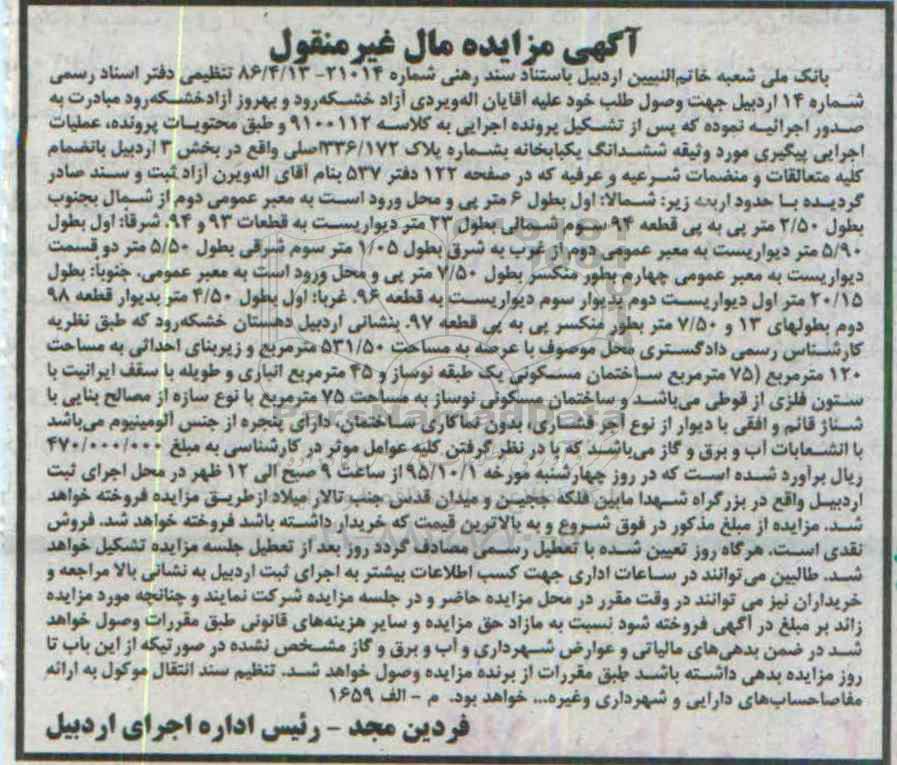 آگهی مزایده مال غیرمنقول
بانک ملی شعبه خاتم‌النبیین اردبیل باستناد سند رهنی شماره ۲۱۰۱۴- ۸۶/۴/۱۳ تنظیمی دفتر اسناد رسمی
شماره ۱۴ اردبیل جهت وصول طلب خود علیه آقایان اله‌ویردی آزاد خشکه‌رود و بهروز آزادخشکه‌رود مبادرت به
صدور اجرائیه نموده که پس از تشکیل پرونده اجرایی به کلاسه ۹۱۰۰۱۱۲ و طبق محتویات پرونده، عملیات
اجرایی پیگیری مورد وثیقه ششدانگ یکبابخانه بشماره پلاک ۳۳۶/۱۷۲اصلی واقع در بخش ۳ اردبیل بانضمام
کلیه متعلقات و منضمات شرعیه و عرفیه که در صفحه ۱۲۲ دفتر ۵۳۷ بنام آقای اله‌ویرن آزاد ثبت و سند صادر
گردیده با حدود اربعه زیر: شمالا: اول بطول ۶ متر پی و محل ورود است به معبر عمومی دوم از شمال بجنوب
بطول ۲/۵۰ متر پی به پی قطعه ۹۴ سوم شمالی بطول ۲۳ متر دیواریست به قطعات ۹۳ و ۹۴. شرقا: اول بطول
۵/۹۰ متر دیواریست به معبر عمومی دوم از غرب به شرق بطول ۱/۰۵ متر سوم شرقی بطول ۵/۵۰ متر دو قسمت
دیواریست به معبر عمومی چهارم بطور منکسر بطول ۷/۵۰ متر پی و محل ورود است به معبر عمومی. جنوبا: بطول
۲۰/۱۵ متر اول دیواریست دوم بدیوار سوم دیواریست به قطعه ۹۶. غربا: اول بطول ۴/۵۰ متر بدیوار قطعه ۹۸
دوم بطولهای ۱۳ و ۷/۵۰ متر بطور منکسر پی به پی قطعه ۹۷. بنشانی اردبیل دهستان خشکه‌رود که طبق نظریه
کارشناس رسمی دادگستری محل موصوف با عرصه به مساحت ۵۳۱/۵۰ مترمربع و زیربنای احداثی به مساحت
۱۲۰ مترمربع (۷۵ مترمربع ساختمان مسکونی یک طبقه نوساز و ۴۵ مترمربع انباری و طویله با سقف ایرانیت با
ستون فلزی از قوطی می‌باشد و ساختمان مسکونی نوساز به مساحت ۷۵ مترمربع با نوع سازه از مصالح بنایی با
شناژ قائم و افقی با دیوار از نوع آجر فشاری، بدون نماکاری ساختمان، دارای پنجره از جنس آلومینیوم می‌باشد
با انشعابات آب و برق و گاز می‌باشد که با در نظر گرفتن کلیه عوامل موثر در کارشناسی به مبلغ ۴۷۰/۰۰۰/۰۰۰
ریال برآورد شده است که در روز چهارشنبه مورخه ۹۵/۱۰/۱ از ساعت ۹ صبح الی ۱۲ ظهر در محل اجرای ثبت
اردبیل واقع در بزرگراه شهدا مابین فلکه ججین و میدان قدس جنب تالار میلاد از طریق مزایده فروخته خواهد
شد. مزایده از مبلغ مذکور در فوق شروع و به بالاترین قیمت که خریدار داشته باشد فروخته خواهد شد. فروش
نقدی است. هرگاه روز تعیین شده با تعطیل رسمی مصادف گردد روز بعد از تعطیل جلسه مزایده تشکیل خواهد
شد. طالبین می‌توانند در ساعات اداری جهت کسب اطلاعات بیشتر به اجرای ثبت اردبیل به نشانی بالا مراجعه و
خریداران نیز می توانند در وقت مقرر در محل مزایده حاضر و در جلسه مزایده شرکت نمایند و چنانچه مورد مزایده
زائد بر مبلغ در آگهی فروخته شود نسبت به مازاد حق مزایده و سایر هزینه‌های قانونی طبق مقررات وصول خواهد
شد در ضمن بدهی‌های مالیاتی و عوارض شهرداری و آب و برق و گاز مشخص نشده در صورتیکه از این باب تا
روز مزایده بدهی داشته باشد طبق مقررات از برنده مزایده وصول خواهد شد. تنظیم سند انتقال موکول به ارائه
مفاصاحساب‌های دارایی و شهرداری وغیره... خواهد بود. م - الف ۱۶۵۹
فردین مجد - رئیس اداره اجرای اردبیل
ParsNamadData